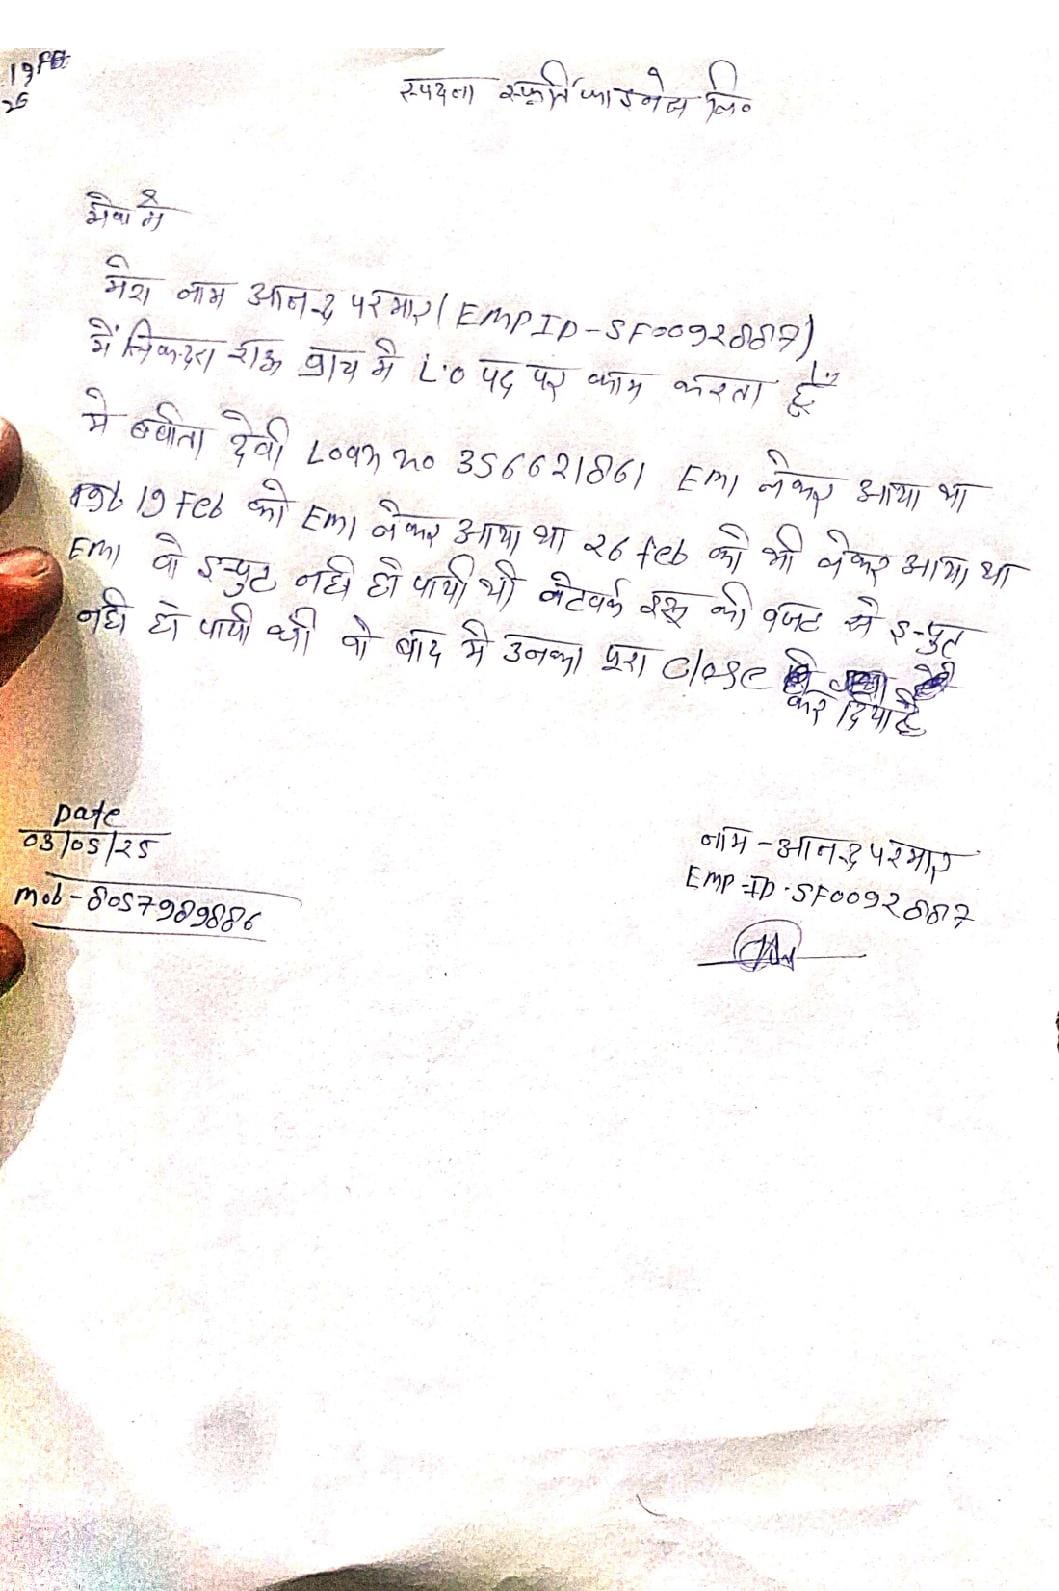 19 Feb
25
स्पंदना स्फूर्ति फाइनेंस लि०
सेवा में
मेरा नाम आनन्द परमार (EMP ID-SF0092887)
में सिकन्दरा राऊ ब्रांच में L.O पद पर काम करता हूँ
में बबीता देवी Loan no 356621861 EMI लेकर आया था
19 Feb को EMI लेकर आया था 26 Feb को भी लेकर आया था
EMI वो इन्पुट नही हो पायी थी नेटवर्क की वजह से इन्पुट
नही हो पायी थी वो बाद में उनका पूरा close
कर दिया है
Date
03/05/25
mob-8057989886
नाम - आनन्द परमार
EMP-ID-SF0092887